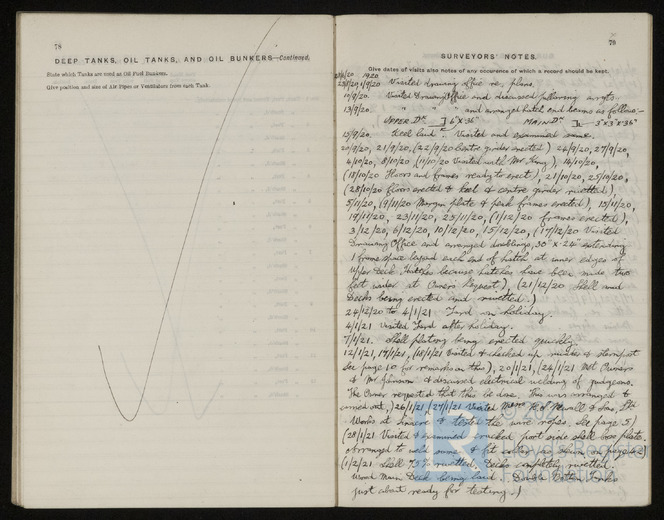 78
DEEP TANKS, OIL TANKS, AND OIL BUNKERS—Continued.
State which Tanks are used as Oil Fuel Bunkers.
Give position and size of Air Pipes or Ventilators from each Tank.
78
SURVEYORS' NOTES.
Give dates of visits also notes of any occurence of which a record should be kept.
1920
Visited drawing office re. plans.
10/9/20. Visited Drawing Office and discussed following
13/9/20. " " " and arranged hatch end beams as follows:—
UPPER DK. MAIN DK.
15/9/20. Keel laid. Visited and examined same.
20/9/20, 21/9/20, (22/9/20 Centre girder erected) 24/9/20, 27/9/20,
4/10/20, 8/10/20, (11/10/20 Visited with Mr King), 14/10/20,
(18/10/20 Floors and frames ready to erect), 21/10/20, 25/10/20,
(28/10/20 floors erected & keel & centre girder rivetted),
5/11/20, (9/11/20 Margin plate & peak frames erected), 15/11/20,
19/11/20, 23/11/20, 25/11/20, (1/12/20 frames erected),
3/12/20, 6/12/20, 10/12/20, 15/12/20, (17/12/20 Visited
Drawing Office and arranged doublings, 30" x .24" extending
1 frame space beyond each end of hatch at inner edges of
Upper Deck Hatches because hatches have been made two
feet wider at Owners Request), (21/12/20 Shell and
Decks being erected and rivetted.)
24/12/20 to 4/1/21 Yard on holiday.
4/1/21 Visited Yard after holiday.
7/1/21. Shell plating being erected quickly.
12/1/21, 14/1/21, (18/1/21 Visited & checked up rudder & sternpost
See page 10 for remarks on this), 20/1/21, (24/1/21 Met Owners
& Mr & discussed electrical welding of gudgeons.
The Owner requested that this be done, this was arranged to
carried out,) 26/1/21, (27/1/21 Visited Messrs R. S. Newall & Son, Ltd
Works at & tested the wire ropes. See page 5)
(28/1/21 Visited & examined cracked port side shell boss plate.
Arranged to weld same & fit
(1/2/21 Shell 75% rivetted, Decks completely rivetted.
Wood Main Deck being laid. Double Bottom Tanks
just about ready for testing.)
© 202
LR
Lloyd's Register
Foundation